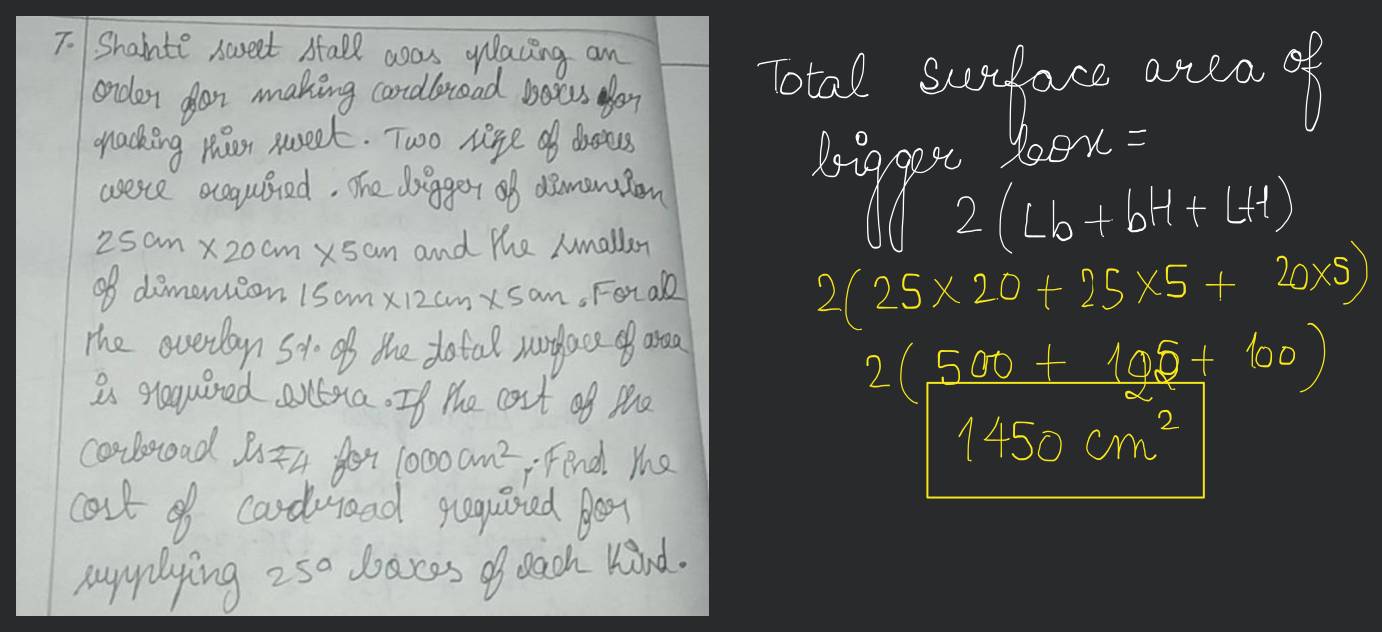 7. Shahti sweet stall was placing an
order for making cardbroad boxes for
packing thier sweet. Two size of boxes
were required. The bigger of dimension
25cm x 20cm x 5cm and the smaller
of dimension 15cm x 12cm x 5cm. For all
the overlap 5% of the total surface of area
is required extra. If the cost of the
corbroad is ₹4 for 1000cm², Find the
cost of cardbroad required for
supplying 250 boxes of each kind.
Total surface area of
bigger box =
2(Lb + bH + LH)
2(25 x 20 + 25 x 5 + 20x5)
2(500 + 125 + 100)
1450 cm²